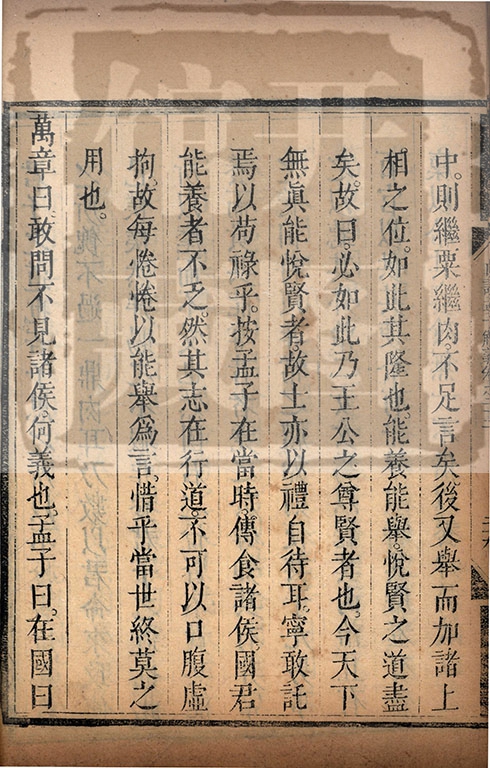 中。則繼粟繼肉。不足言矣。後又舉而加諸上
相之位。如此其隆也。能養能舉。悅賢之道盡
矣。故曰。必如此乃王公之尊賢者也。今天下
無眞能悅賢者。故士亦以禮。自待耳。寧敢託
焉以苟祿乎。按孟子在當時。傳食諸侯。國君
能養者不乏。然其志在行道。不可以口腹虛
拘。故每惓惓以能舉爲言。惜乎當世終莫之
用也。
萬章曰。敢問不見諸侯。何義也。孟子曰。在國曰